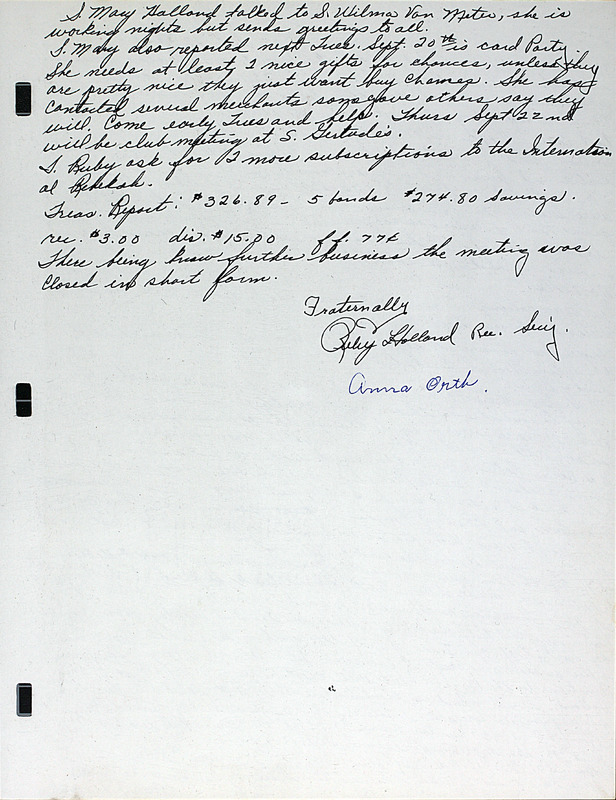 S. Mary Holland talked to S. Wilma Van Meter, she is
working nights but sends greetings to all.
S. Mary also reported next Tues. Sept. 20th is card Party.
She needs at least 2 nice gifts for chances, unless they
are pretty nice they just wont buy chances. She has
contacted several merchants some gave others say they
will. Come early Tues and help. Thurs Sept 22nd
will be club meeting at S. Gertude's.
S. Ruby ask for 2 more subscriptions to the Internation
al Rebekah.
Treas. Report: $326.89 - 5 bonds $274.80 Savings.
rec. $3.00 dis. $15.00 f.f. 77¢
There being know further business the meeting was
closed in short form.
Fraternally
Ruby Holland Rec. Sec'y.
Anna Orth.